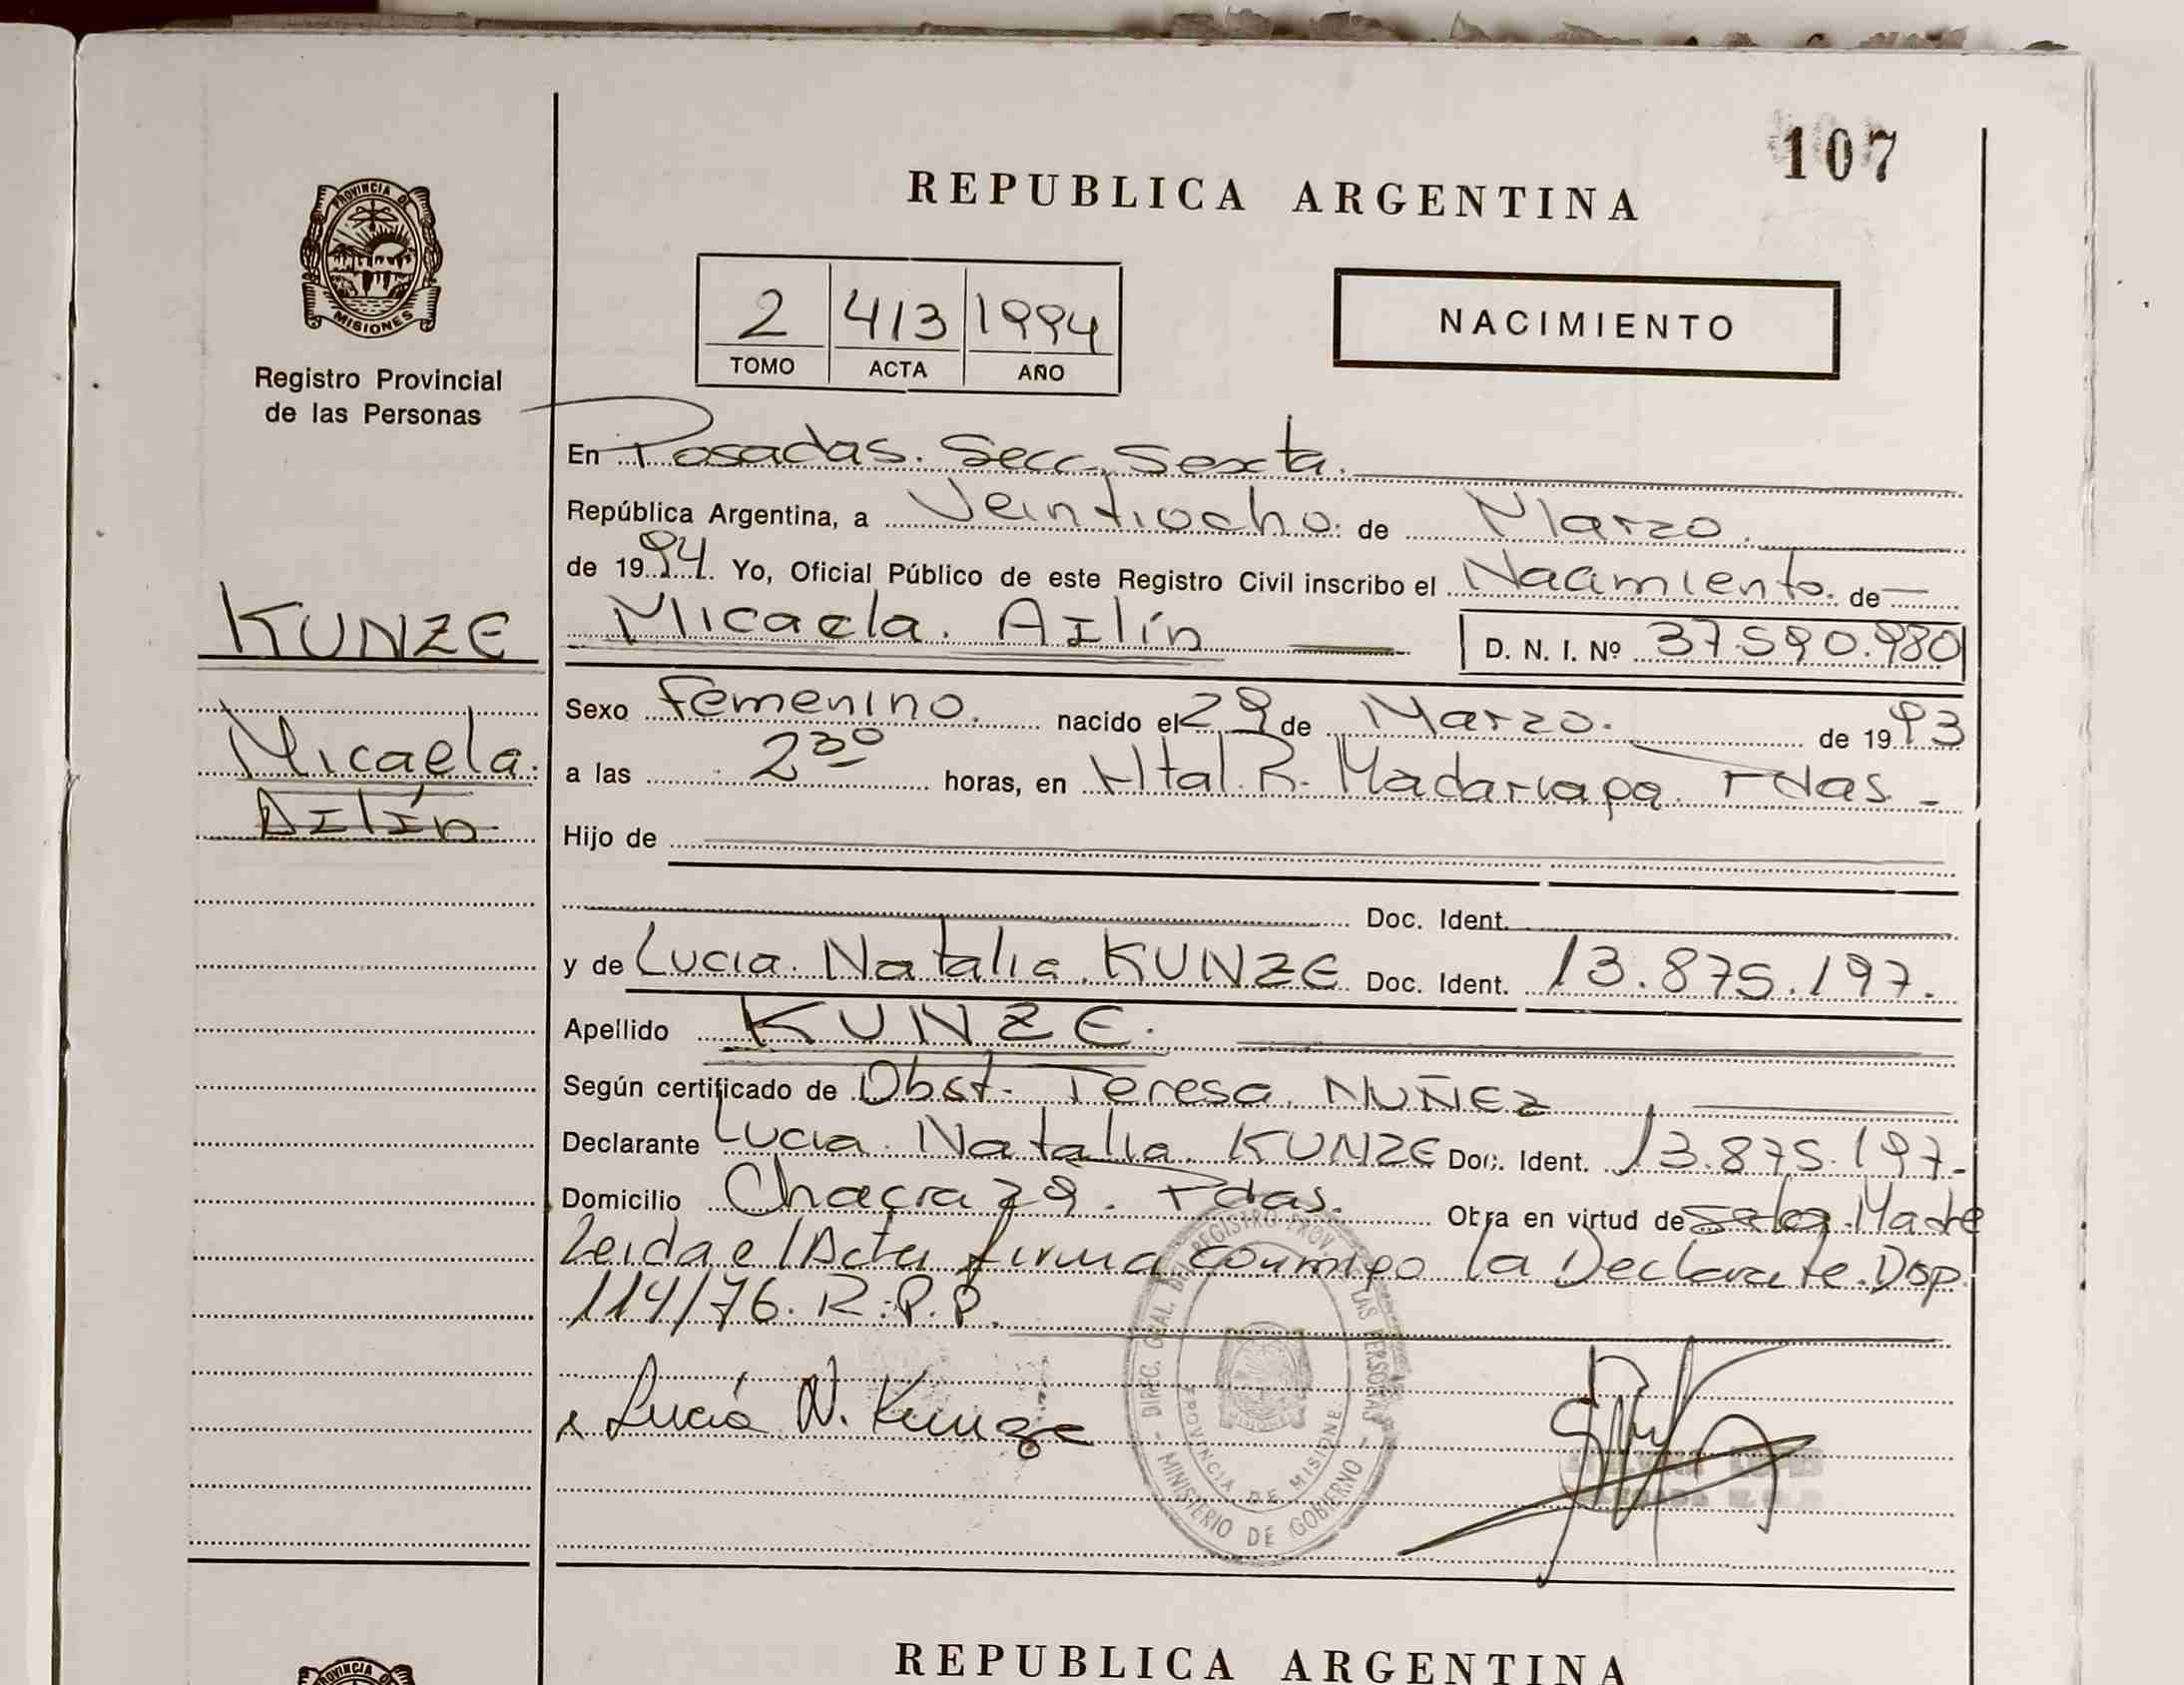 107
REPUBLICA ARGENTINA
PROVINCIA DE
MISIONES
Registro Provincial
de las Personas
2 413 1994
TOMO ACTA AÑO
NACIMIENTO
En Posadas. Secc. Sexta.
República Argentina, a Veintiocho. de Marzo.
de 1994. Yo, Oficial Público de este Registro Civil inscribo el Nacimiento. de
KUNZE
Micaela. Aılín D. N. I. Nº 37.590.980
Sexo Femenino. nacido el 29 de Marzo. de 1993
Micaela.
Aılín
a las 23º horas, en Htal. R. Madariaga. Pdas.
Hijo de
Doc. Ident.
y de Lucia. Natalia. KUNZE Doc. Ident. 13.875.197.
Apellido KUNZE.
Según certificado de Obst. Teresa. NUÑEZ
Declarante Lucia. Natalia. KUNZE Doc. Ident. 13.875.197-
Domicilio Chacra 29. Pdas. Obra en virtud de Madre
Leida el Acta firma conmigo la Declarate. Dsp.
114/76. R.P.P.
Lucía N. Kunze
DIREC. GRAL. DEL REGISTRO PROV. LAS PERSONAS
PROVINCIA DE MISIONES
MINISTERIO DE GOBIERNO
REPUBLICA ARGENTINA
PROVINCIA DE